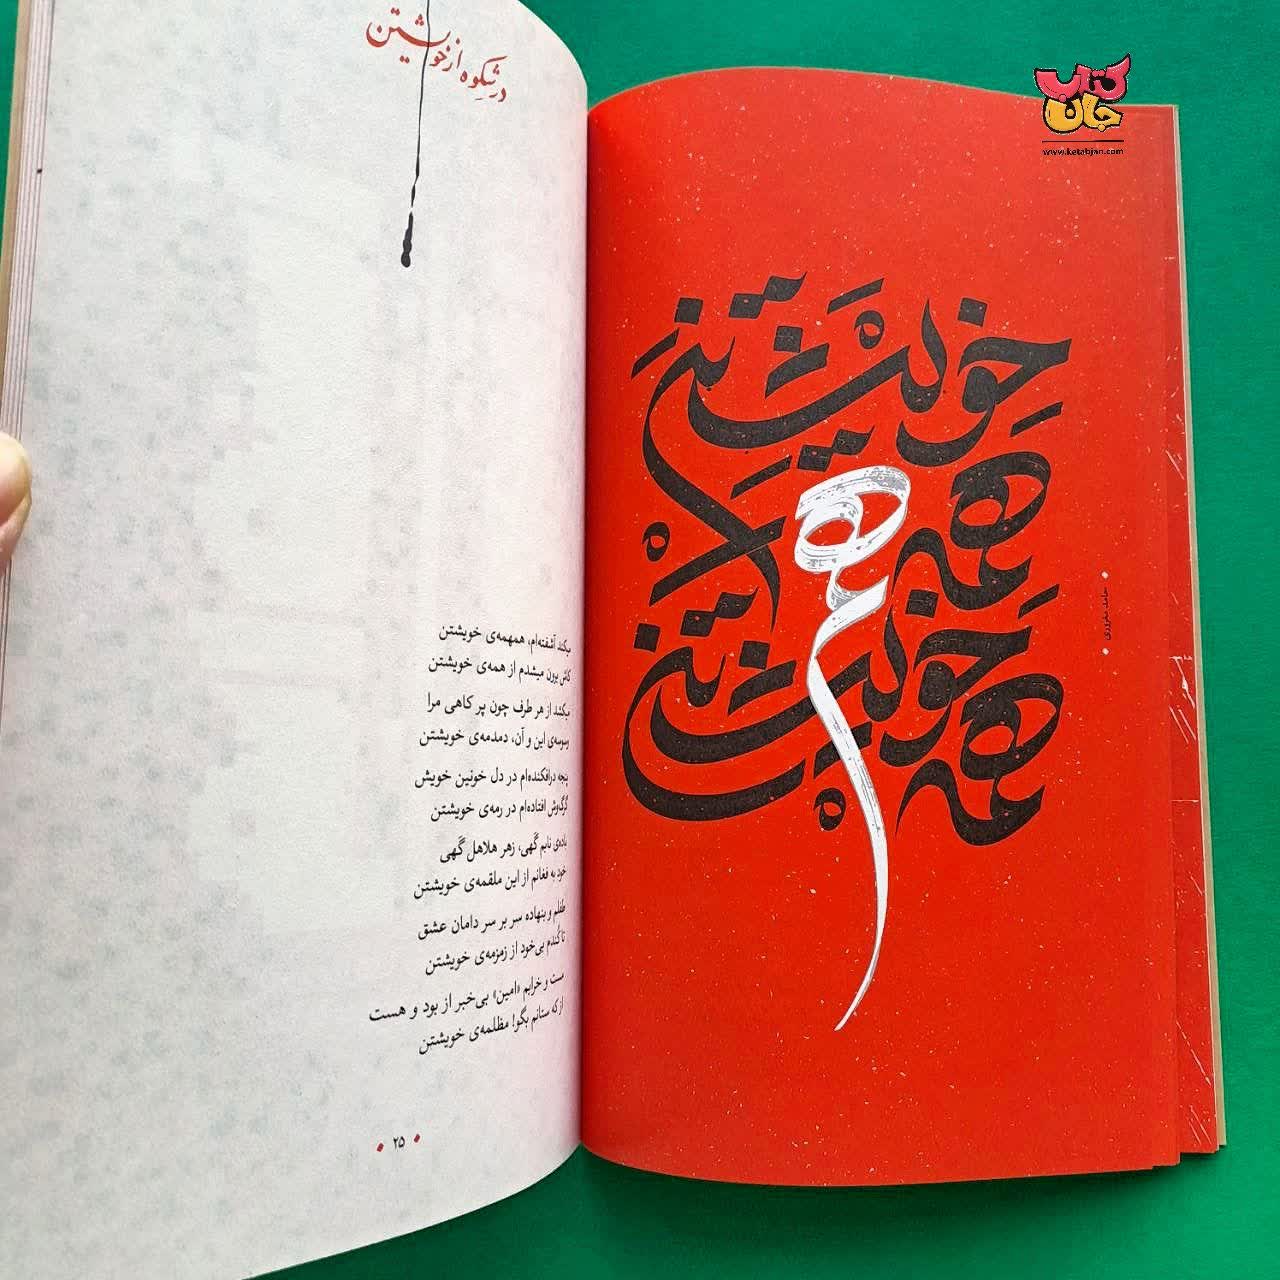 در شکوه از خویشتن
میکند آشفته‌ام، همهمه‌ی خویشتن
کاش برون میشدم از همه‌ی خویشتن
میکشد از هر طرف چون پر کاهی مرا
وسوسه‌ی این و آن، دمدمه‌ی خویشتن
پنجه درافکنده‌ام در دل خونین خویش
گرگ‌وش افتاده‌ام در رمه‌ی خویشتن
باده‌ی نابم گَهی، زهر هلاهل گَهی
خود به فغانم از این ملقمه‌ی خویشتن
طفلم و بنهاده سر بر سر دامان عشق
تا کُندم بی‌خود از زمزمه‌ی خویشتن
مست و خرابم «امین» بی‌خبر از بود و هست
از که ستانم بگو! مظلمه‌ی خویشتن
۲۵
کتاب
جان
www.ketabjan.com
خویشتن
همه
همه
خویشتن
همه
حامد مغروری